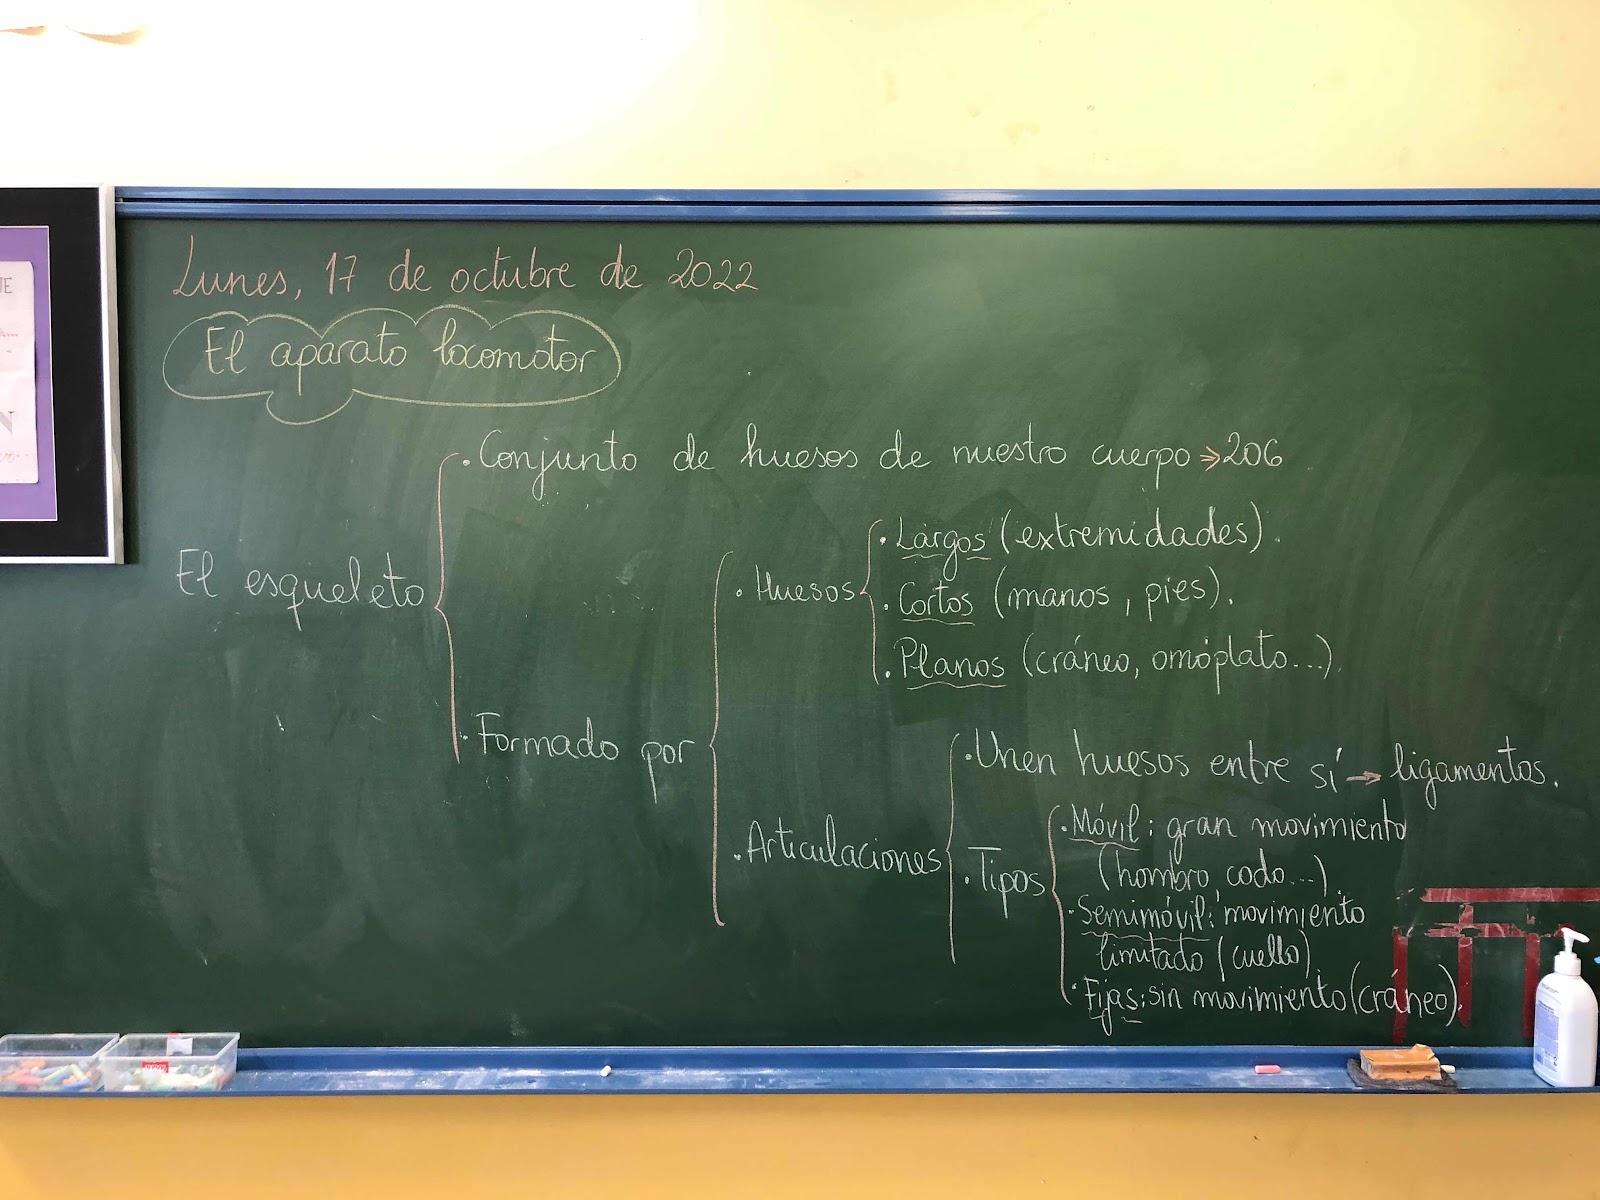 Lunes, 17 de octubre de 2022
El aparato locomotor
. Conjunto de huesos de nuestro cuerpo → 206
El esqueleto
. Formado por
. Huesos
. Largos (extremidades).
. Cortos (manos, pies).
. Planos (cráneo, omóplato...).
. Articulaciones
. Unen huesos entre sí → ligamentos.
. Tipos
. Móvil: gran movimiento
(hombro, codo...)
. Semimóvil: movimiento
limitado (cuello).
. Fijas: sin movimiento (cráneo).